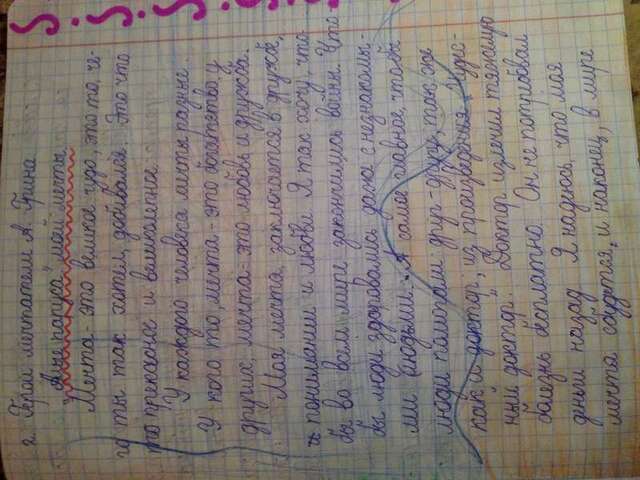 2. Герои мечтатели А. Грина
"Алые паруса" моей мечты.
Мечта - это великое чудо, это то, че-
го ты так хотел, добивался. Это что-
то прикасное и великолепное.
У каждого человека мечты разные.
У кого то мечта - это богатство у
других мечта - это любовь и дружба.
Моя мечта, заключается в дружбе,
и понимании и любви. Я так хочу, что
бы во всем мире закончились войны. Что
бы люди здоровались даже с незнакомы-
ми людьми. А самое главное, чтобы
люди помогали друг-другу, так же
как и доктор, из произведения "Чудес-
ный доктор". Доктор излечил тяжелую
болезнь бесплатно. Он не потребовал
деньги назад. Я надеюсь, что моя
мечта сбудется, и наконец, в мире